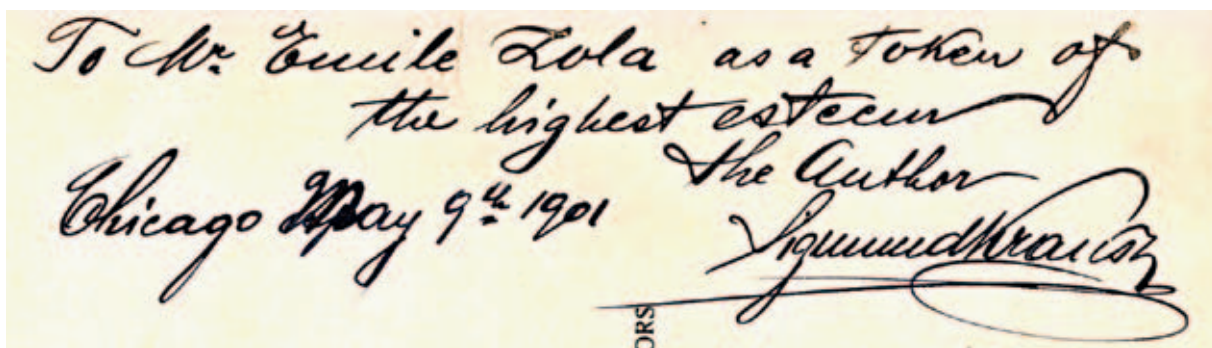 To Mr. Emile Zola as a token of
the highest esteem
the Author
Chicago May 9th 1901
Sigmund Krausz
ORS